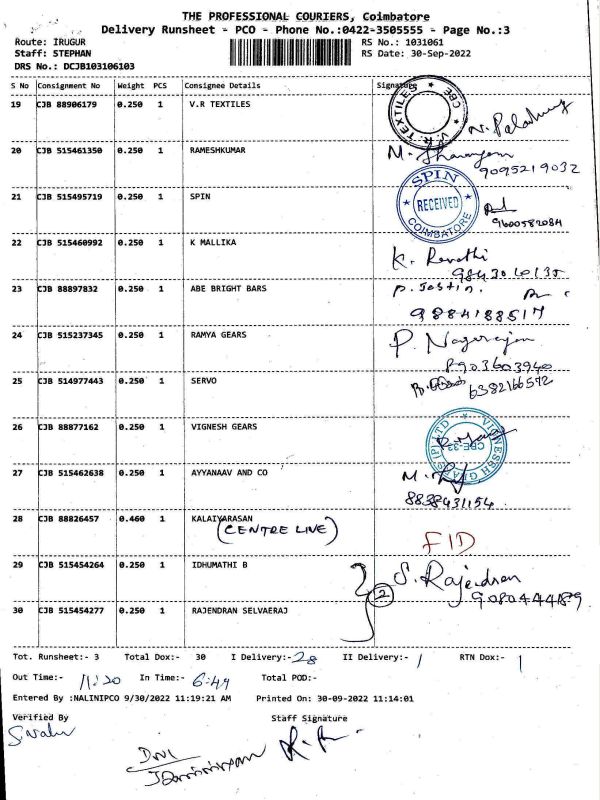 THE PROFESSIONAL COURIERS, Coimbatore
Delivery Runsheet - PCO - Phone No.:0422-3505555 - Page No.:3
Route: IRUGUR RS No.: 1031061
Staff: STEPHAN RS Date: 30-Sep-2022
DRS No.: DCJB103106103
S No Consignment No Weight PCS Consignee Details Signature
19 CJB 88906179 0.250 1 V.R TEXTILES V.R. TEXTILES CBE
20 CJB 515461350 0.250 1 RAMESHKUMAR M.
9095219032
21 CJB 515495719 0.250 1 SPIN SPIN RECEIVED COIMBATORE
9600582084
22 CJB 515460992 0.250 1 K MALLIKA K. Revathi
9843010135
23 CJB 88897832 0.250 1 ABE BRIGHT BARS P. Jastin.
9884188517
24 CJB 515237345 0.250 1 RAMYA GEARS P. Nagarajan
8903603940
25 CJB 514977443 0.250 1 SERVO
6382166572
26 CJB 88877162 0.250 1 VIGNESH GEARS VIGNESH GEARS (P) LTD CBE-33
27 CJB 515462638 0.250 1 AYYANAAV AND CO M.
8838431154
28 CJB 88826457 0.460 1 KALAIYARASAN
(CENTRE LINE) FID
29 CJB 515454264 0.250 1 IDHUMATHI B S. Rajendran
2 9080444189
30 CJB 515454277 0.250 1 RAJENDRAN SELVAERAJ
Tot. Runsheet:- 3 Total Dox:- 30 I Delivery:- 28 II Delivery:- / RTN Dox:- 1
Out Time:- 11:20 In Time:- 6:49 Total POD:-
Entered By :NALINIPCO 9/30/2022 11:19:21 AM Printed On: 30-09-2022 11:14:01
Verified By Staff Signature